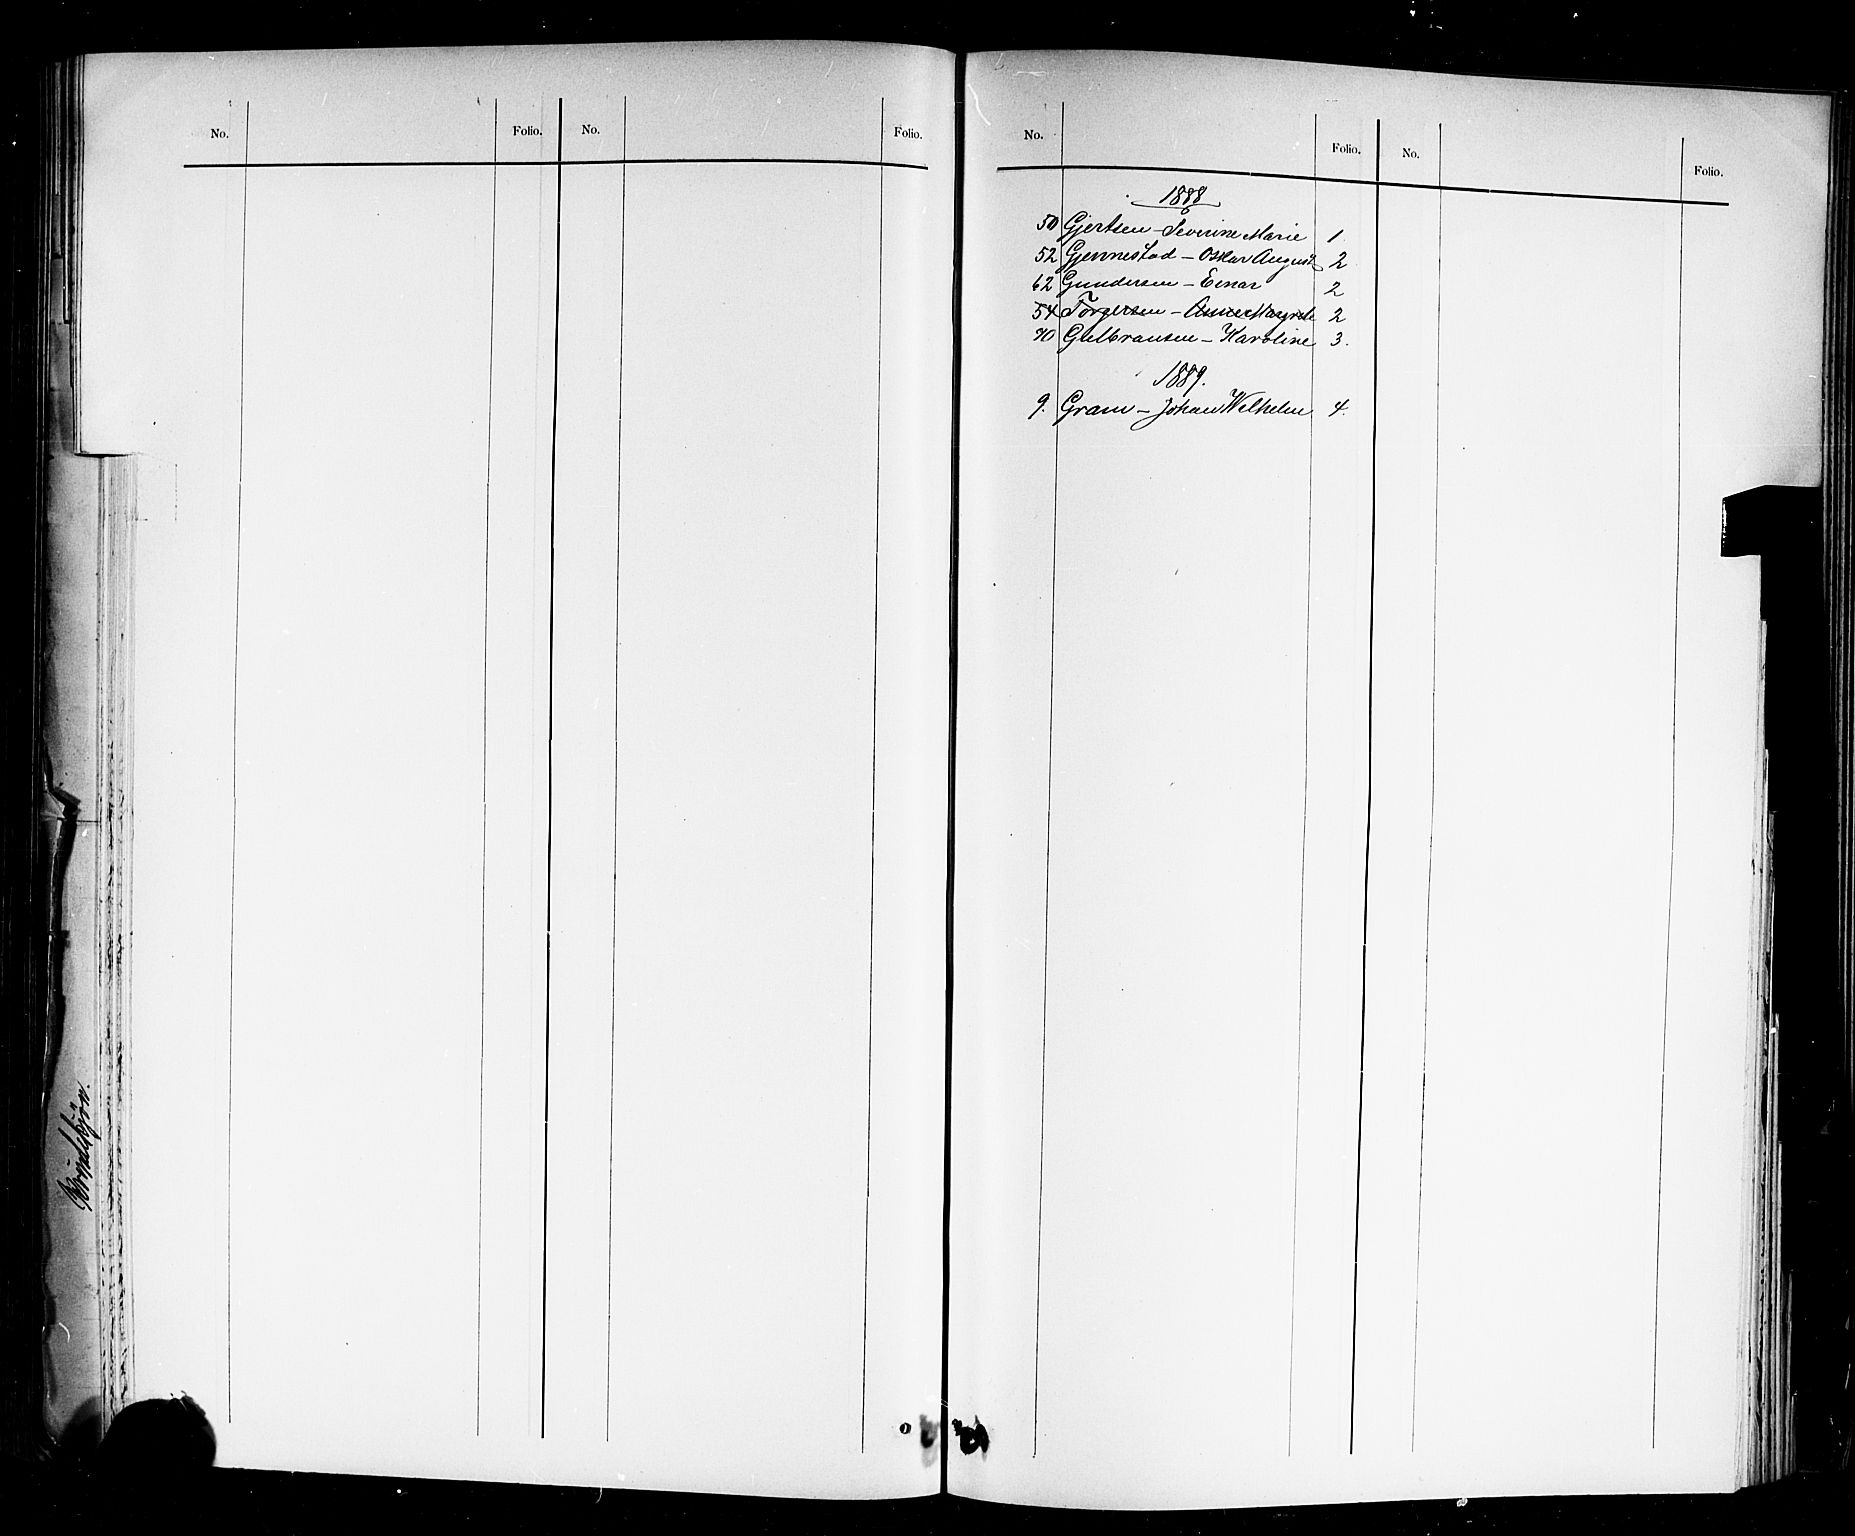 No. Folio. No. Folio.
No. Folio. No. Folio.
1888
50 Gjertsen - Severine Marie 1.
52 Gjennestad - Oskar August 2
62 Gundersen - Einar 2
54 Torgersen - Anne Margrete 2
70 Gulbransen - Karoline 3.
1889.
9. Gram - Johan Wilhelm 4.